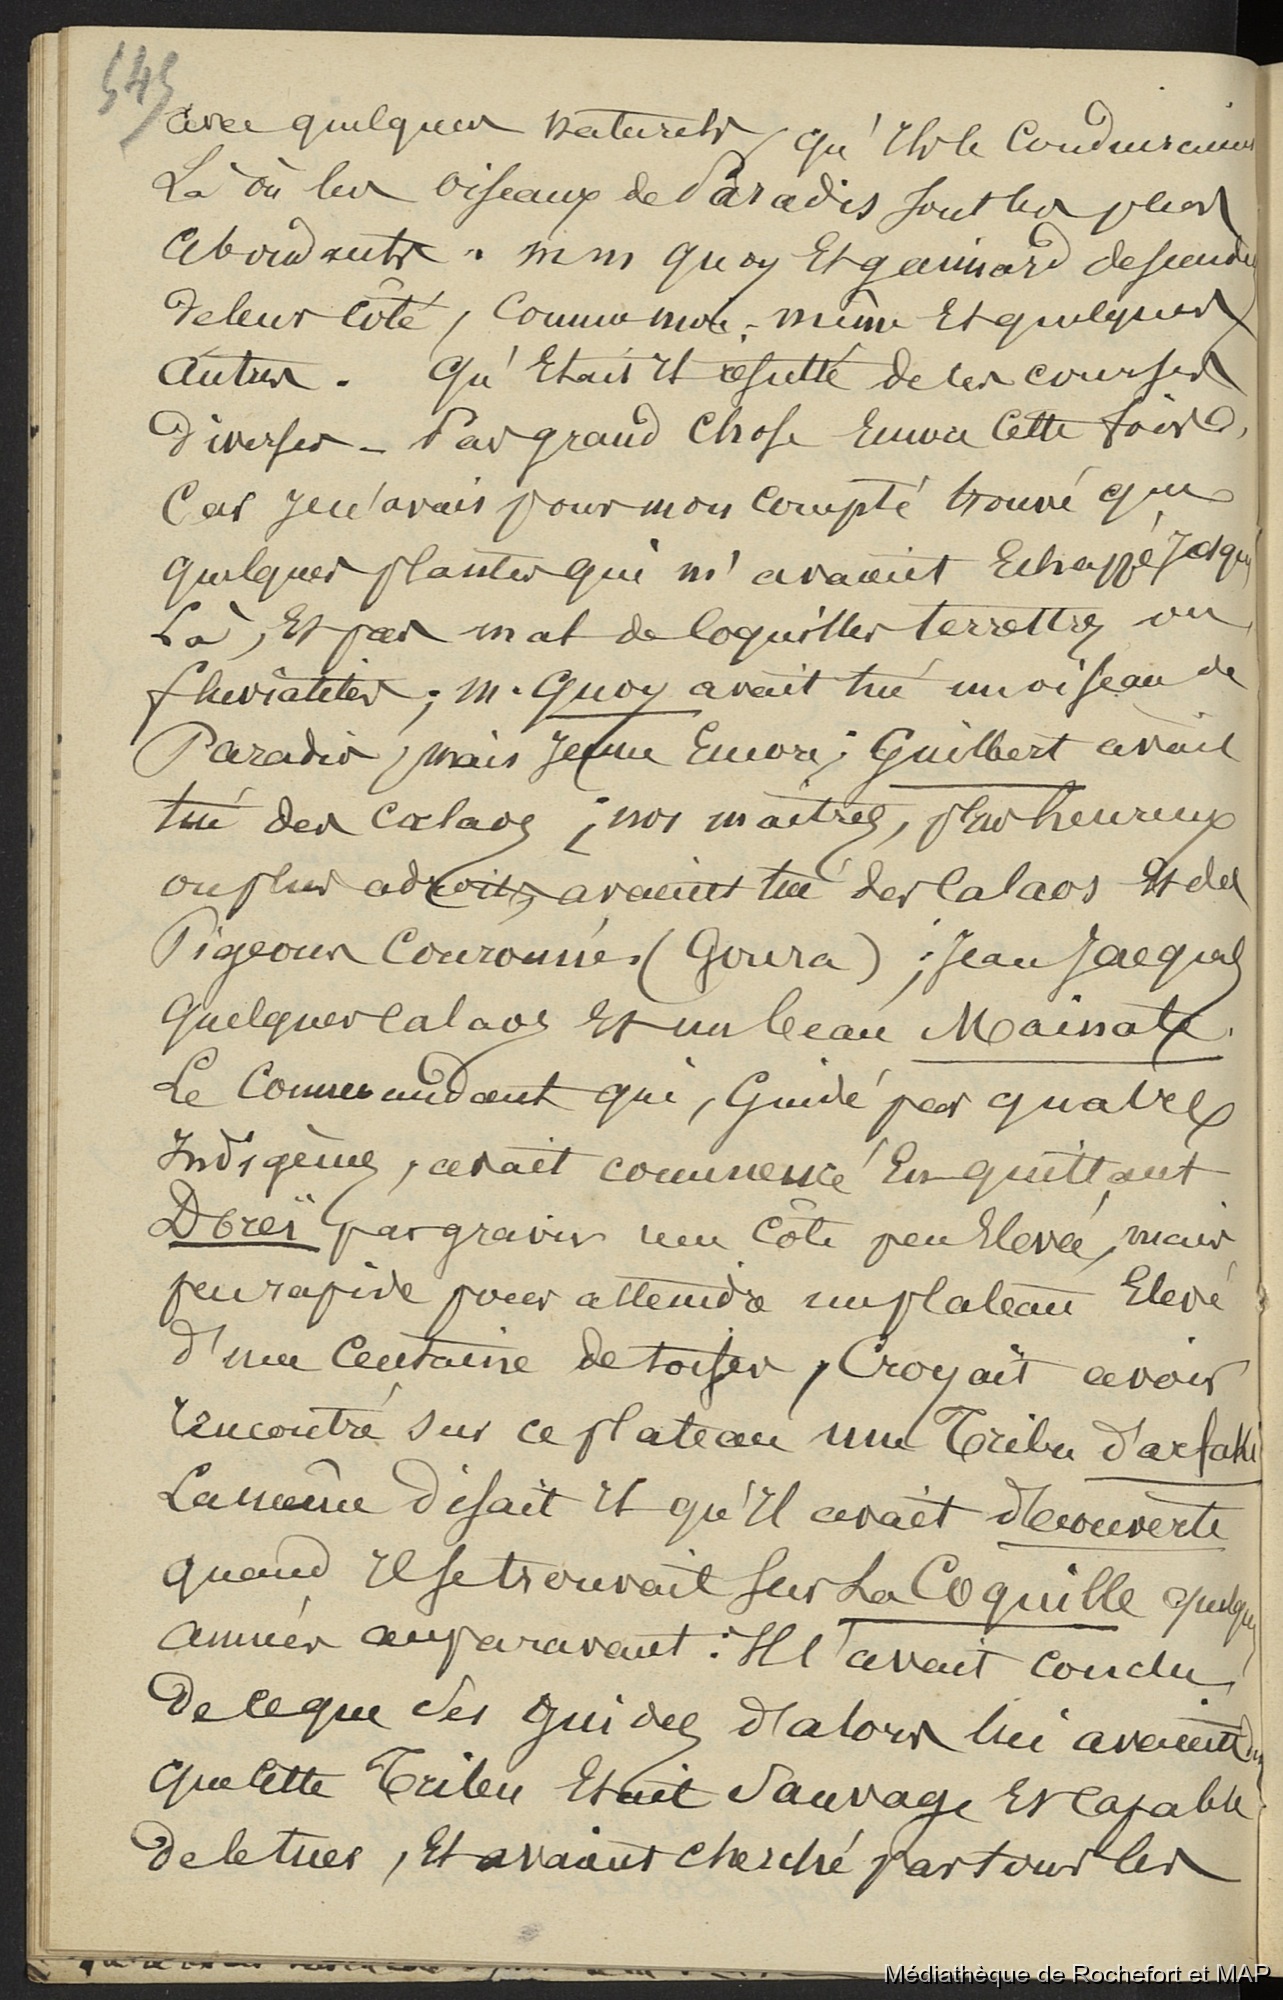 545
avec quelques naturels, qu'ils le conduiraient
Là où les oiseaux de Paradis sont les plus
abondants. m m Quoy Et gaimard descendus
de leur côté, comme moi-même Et quelques
autres. Qu'Etait Il résulté de ces courses
diverses - Pas grand chose Encore cette fois,
Car Je n'avais pour mon compte trouvé que
quelques plantes qui m'avaient Echappé Jusque
Là, Et pas mal de coquilles terrestres ou
fluviatiles; m. Quoy avait tué un oiseau de
Paradis, mais Jeune Encore; Guilbert avait
tué des calaos; nos maîtres, plus heureux
ou plus adroits, avaient tué des Calaos Et des
Pigeons Couronnés (Goura); Jean Jacques
quelques calaos Et un beau Mainate.
Le Commandant qui, Guidé par quatre
Indigènes, avait commencé En quittant
Doreï par gravir une côte peu Elevée, mais
peu rapide pour atteindre un plateau Elevé
d'une Centaine de toises, Croyait avoir
rencontré sur ce plateau une Tribu d'arfaki
La même disait Il qu'Il avait découverte
quand Il se trouvait sur La Coquille quelques
années auparavant: Il l'avait conclu
de ce que ses guides d'alors lui avaient dit
que cette Tribu Etait Sauvage Et Capable
de le tuer, Et avaient cherché par tous les
Médiathèque de Rochefort et MAP